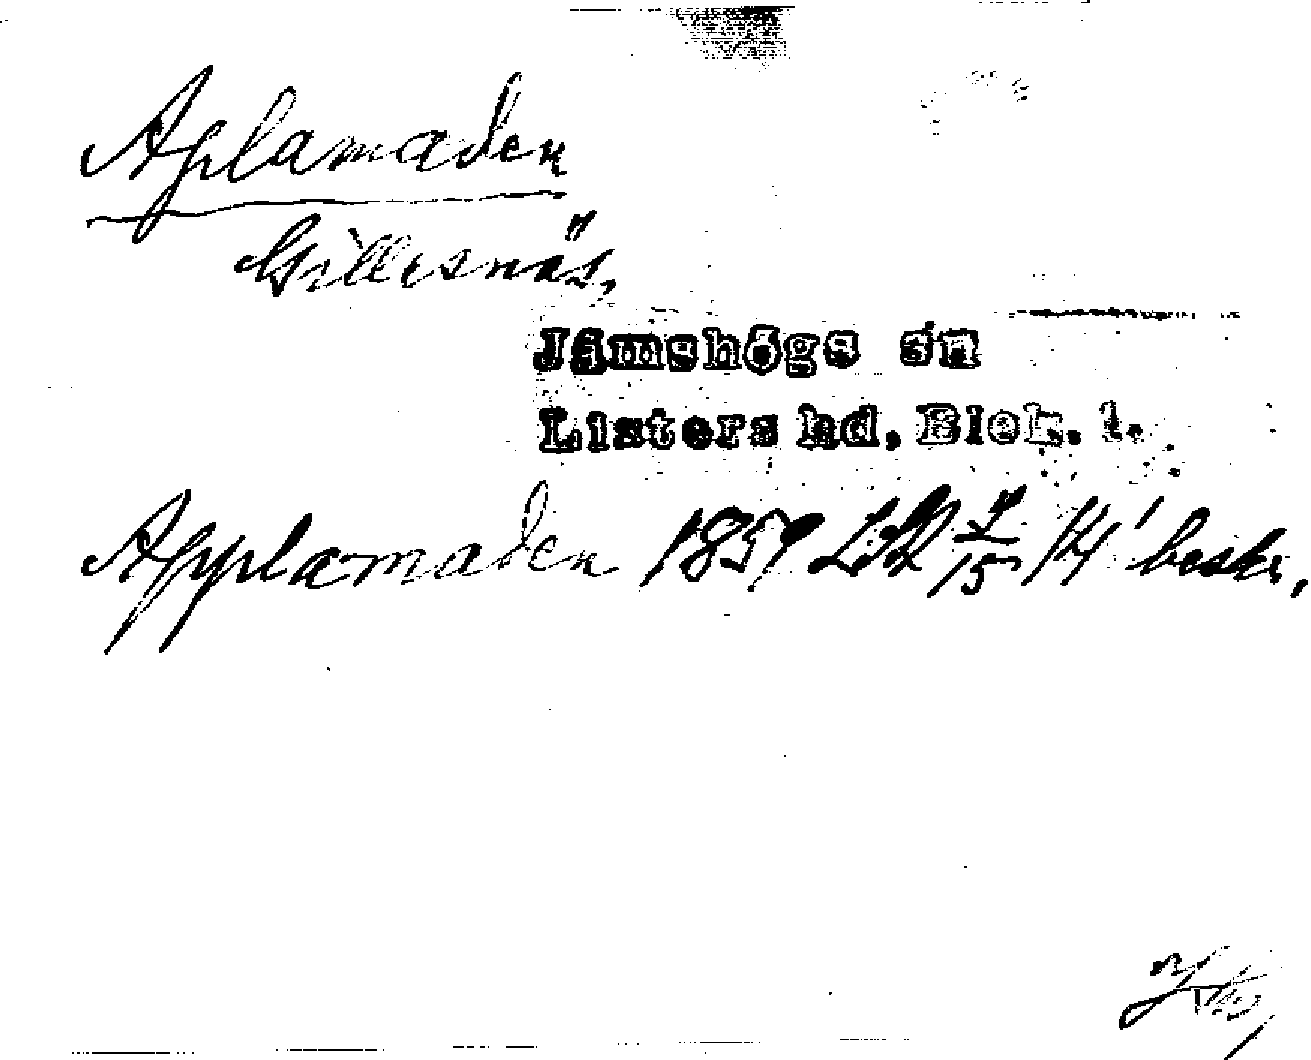 Aplamaden
Gillesnäs,
Jämshögs sn
Listers hd. Blek. l.
Applamaden 1859 LSA beskr.